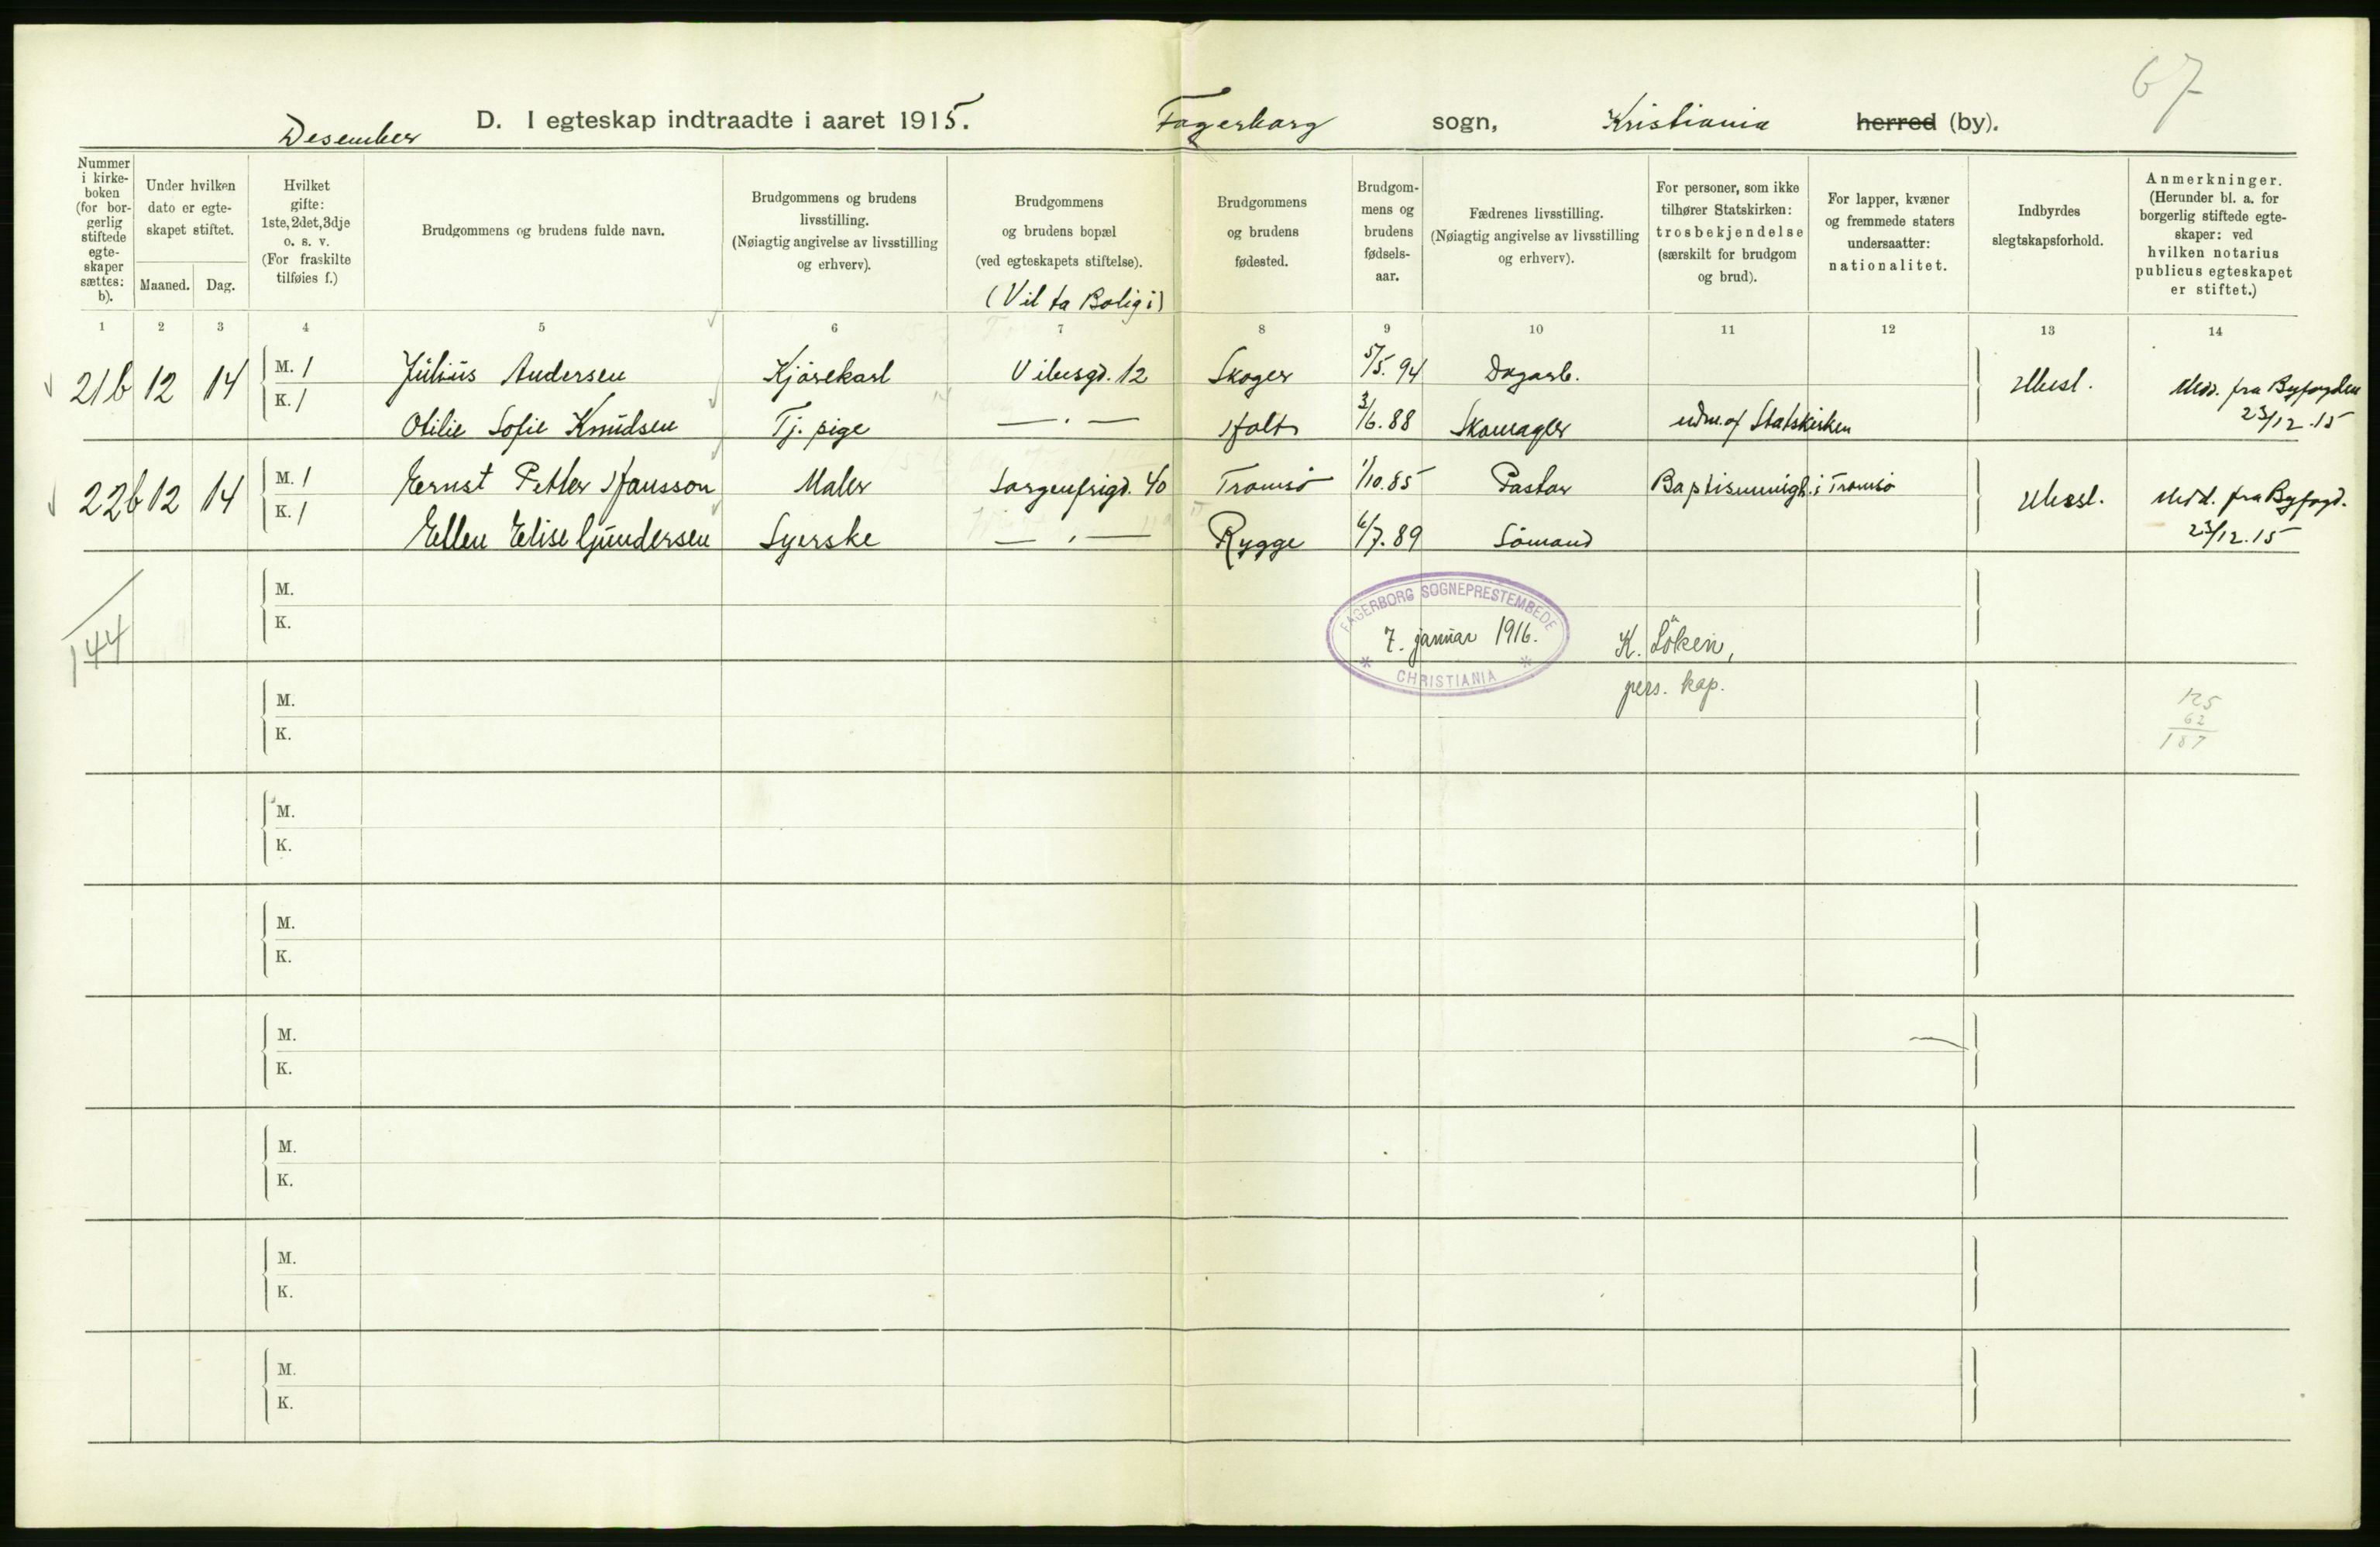 67
Desember D. I egteskap indtraadte i aaret 1915. Fagerborg sogn, Kristiania herred (by).
Nummer i kirkeboken (for borgerlig stiftede egteskaper sættes: b).
Under hvilken dato er egteskapet stiftet.
Maaned. Dag.
Hvilket gifte: 1ste, 2det, 3dje o. s. v. (For fraskilte tilføies f.)
Brudgommens og brudens fulde navn.
Brudgommens og brudens livsstilling. (Nøiagtig angivelse av livsstilling og erhverv).
Brudgommens og brudens bopæl (ved egteskapets stiftelse).
(Vil ta Bolig i)
Brudgommens og brudens fødested.
Brudgommens og brudens fødselsaar.
Fædrenes livsstilling. (Nøiagtig angivelse av livsstilling og erhverv).
For personer, som ikke tilhører Statskirken: trosbekjendelse (særskilt for brudgom og brud).
For lapper, kvæner og fremmede staters undersaatter: nationalitet.
Indbyrdes slegtskapsforhold.
Anmerkninger. (Herunder bl. a. for borgerlig stiftede egteskaper: ved hvilken notarius publicus egteskapet er stiftet.)
1 2 3 4 5 6 7 8 9 10 11 12 13 14
21b 12 14 M. 1 Julius Andersen Kjørekarl Vibesgd. 12 Skoger 5/5.94 Dagarb. Ubesl. Med. fra Byfogden
K. 1 Otilie Sofie Knudsen Tj. pige — . — Holt 3/6.88 Skomager udm. af Statskirken 23/12.15
22b 12 14 M. 1 Ernst Petter Hansson Maler Sorgenfrigd. 40 Tromsø 1/10.85 Pastor Baptistmenigh. i Tromsø Ubesl. Medd. fra Byfogd.
K. 1 Ellen Elise Gundersen Syerske — . — Rygge 6/7.89 Sømand 23/12.15
144
M.
K.
FAGERBORG SOGNEPRESTEMBEDE
7. januar 1916.
* CHRISTIANIA *
K. Löken,
pers. kap.
M.
K.
125
62
187
M.
K.
M.
K.
M.
K.
M.
K.
M.
K.
M.
K.